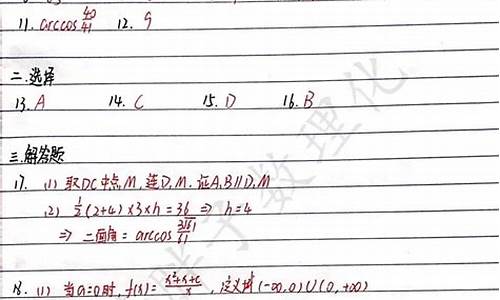 11. arccos 40/41 12. 9
二.选择
13. A 14. C 15. D 16. B
三.解答题
17. (1) 取DC中点M,连D,M.证A,B∥D,M
(2) 1/2(2+4)×3×h=36 ⇒ h=4
⇒ 二面角=arccos 3√61/61
18. (1) 当a=0时,f(x)=x²+x+c/x,定义域(-∞,0)∪(0,+∞)
胖子数理化